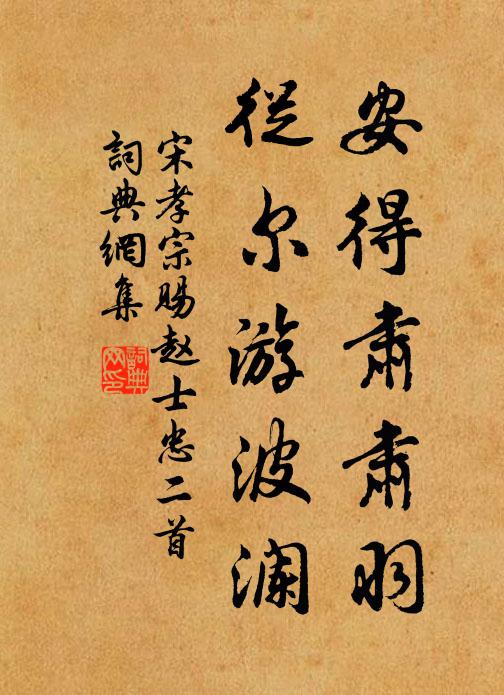 安得肃肃羽
從尔游波澜
宋孝宗赐赵士忠二首
詞典網集
詞典网印